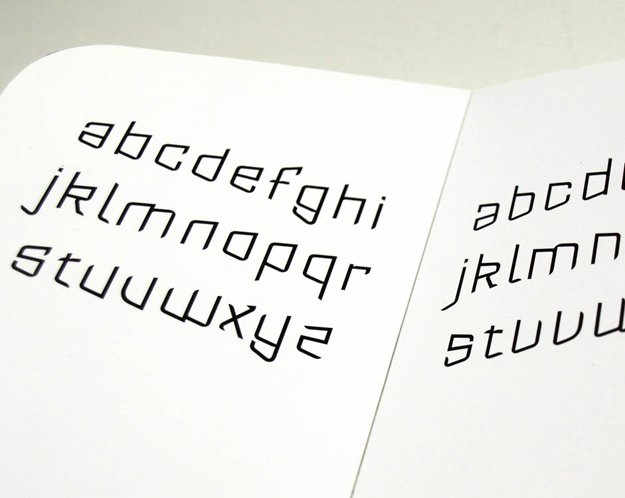 abcdefghi
jklmnopqr
stuvwxyz
abcd
jklmn
stuv